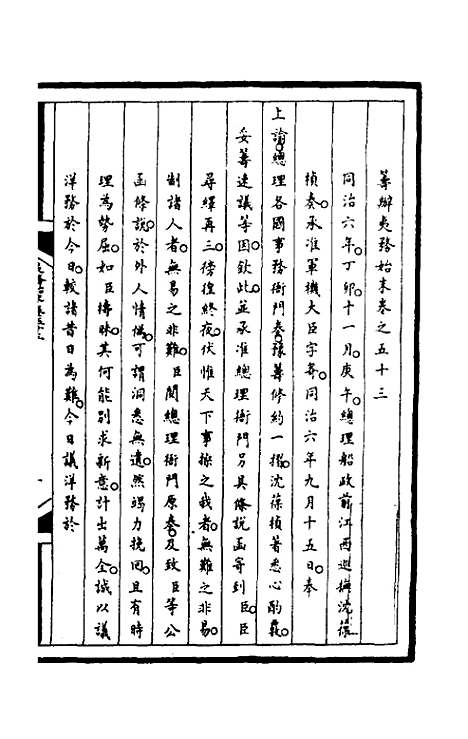 籌辦夷務始末卷之五十三
同治六年。丁卯。十一月。庚午。總理船政前江西巡撫沈葆
楨奏。承准軍機大臣字寄。同治六年九月十五日奉
上諭。總理各國事務衙門奏。豫籌修約一摺。沈葆楨著悉心酌覈。
妥籌速議等因。欽此。並承准總理衙門另具條說函寄到臣。臣
尋繹再三。徬徨終夜。伏惟天下事操之我者。無難之非易。
制諸人者。無易之非難。臣閱總理衙門原奏。及致臣等公
函條說。於外人情偽。可謂洞悉無遺。然竭力挽回。且有時
理為勢屈。如臣檮昧。其何能別求新意。計出萬全。誠以議
洋務於今日。較諸昔日為難。今日議洋務於